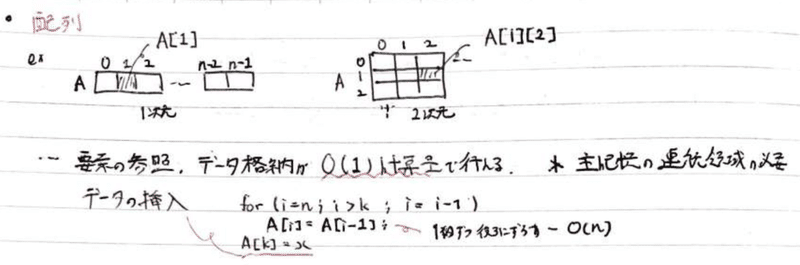 • 配列
ex
A[1]
0 1 2 n-2 n-1
A ...
1次元
A[1][2]
0 1 2
A
0
1
2
2次元
… 要素の参照, データ格納が O(1)計算量で行える. * 主記憶の連続領域が必要
データの挿入 for (i=n; i>k ; i= i-1)
A[i]= A[i-1]; 1個ずつ後ろにずらす - O(n)
A[k]=x